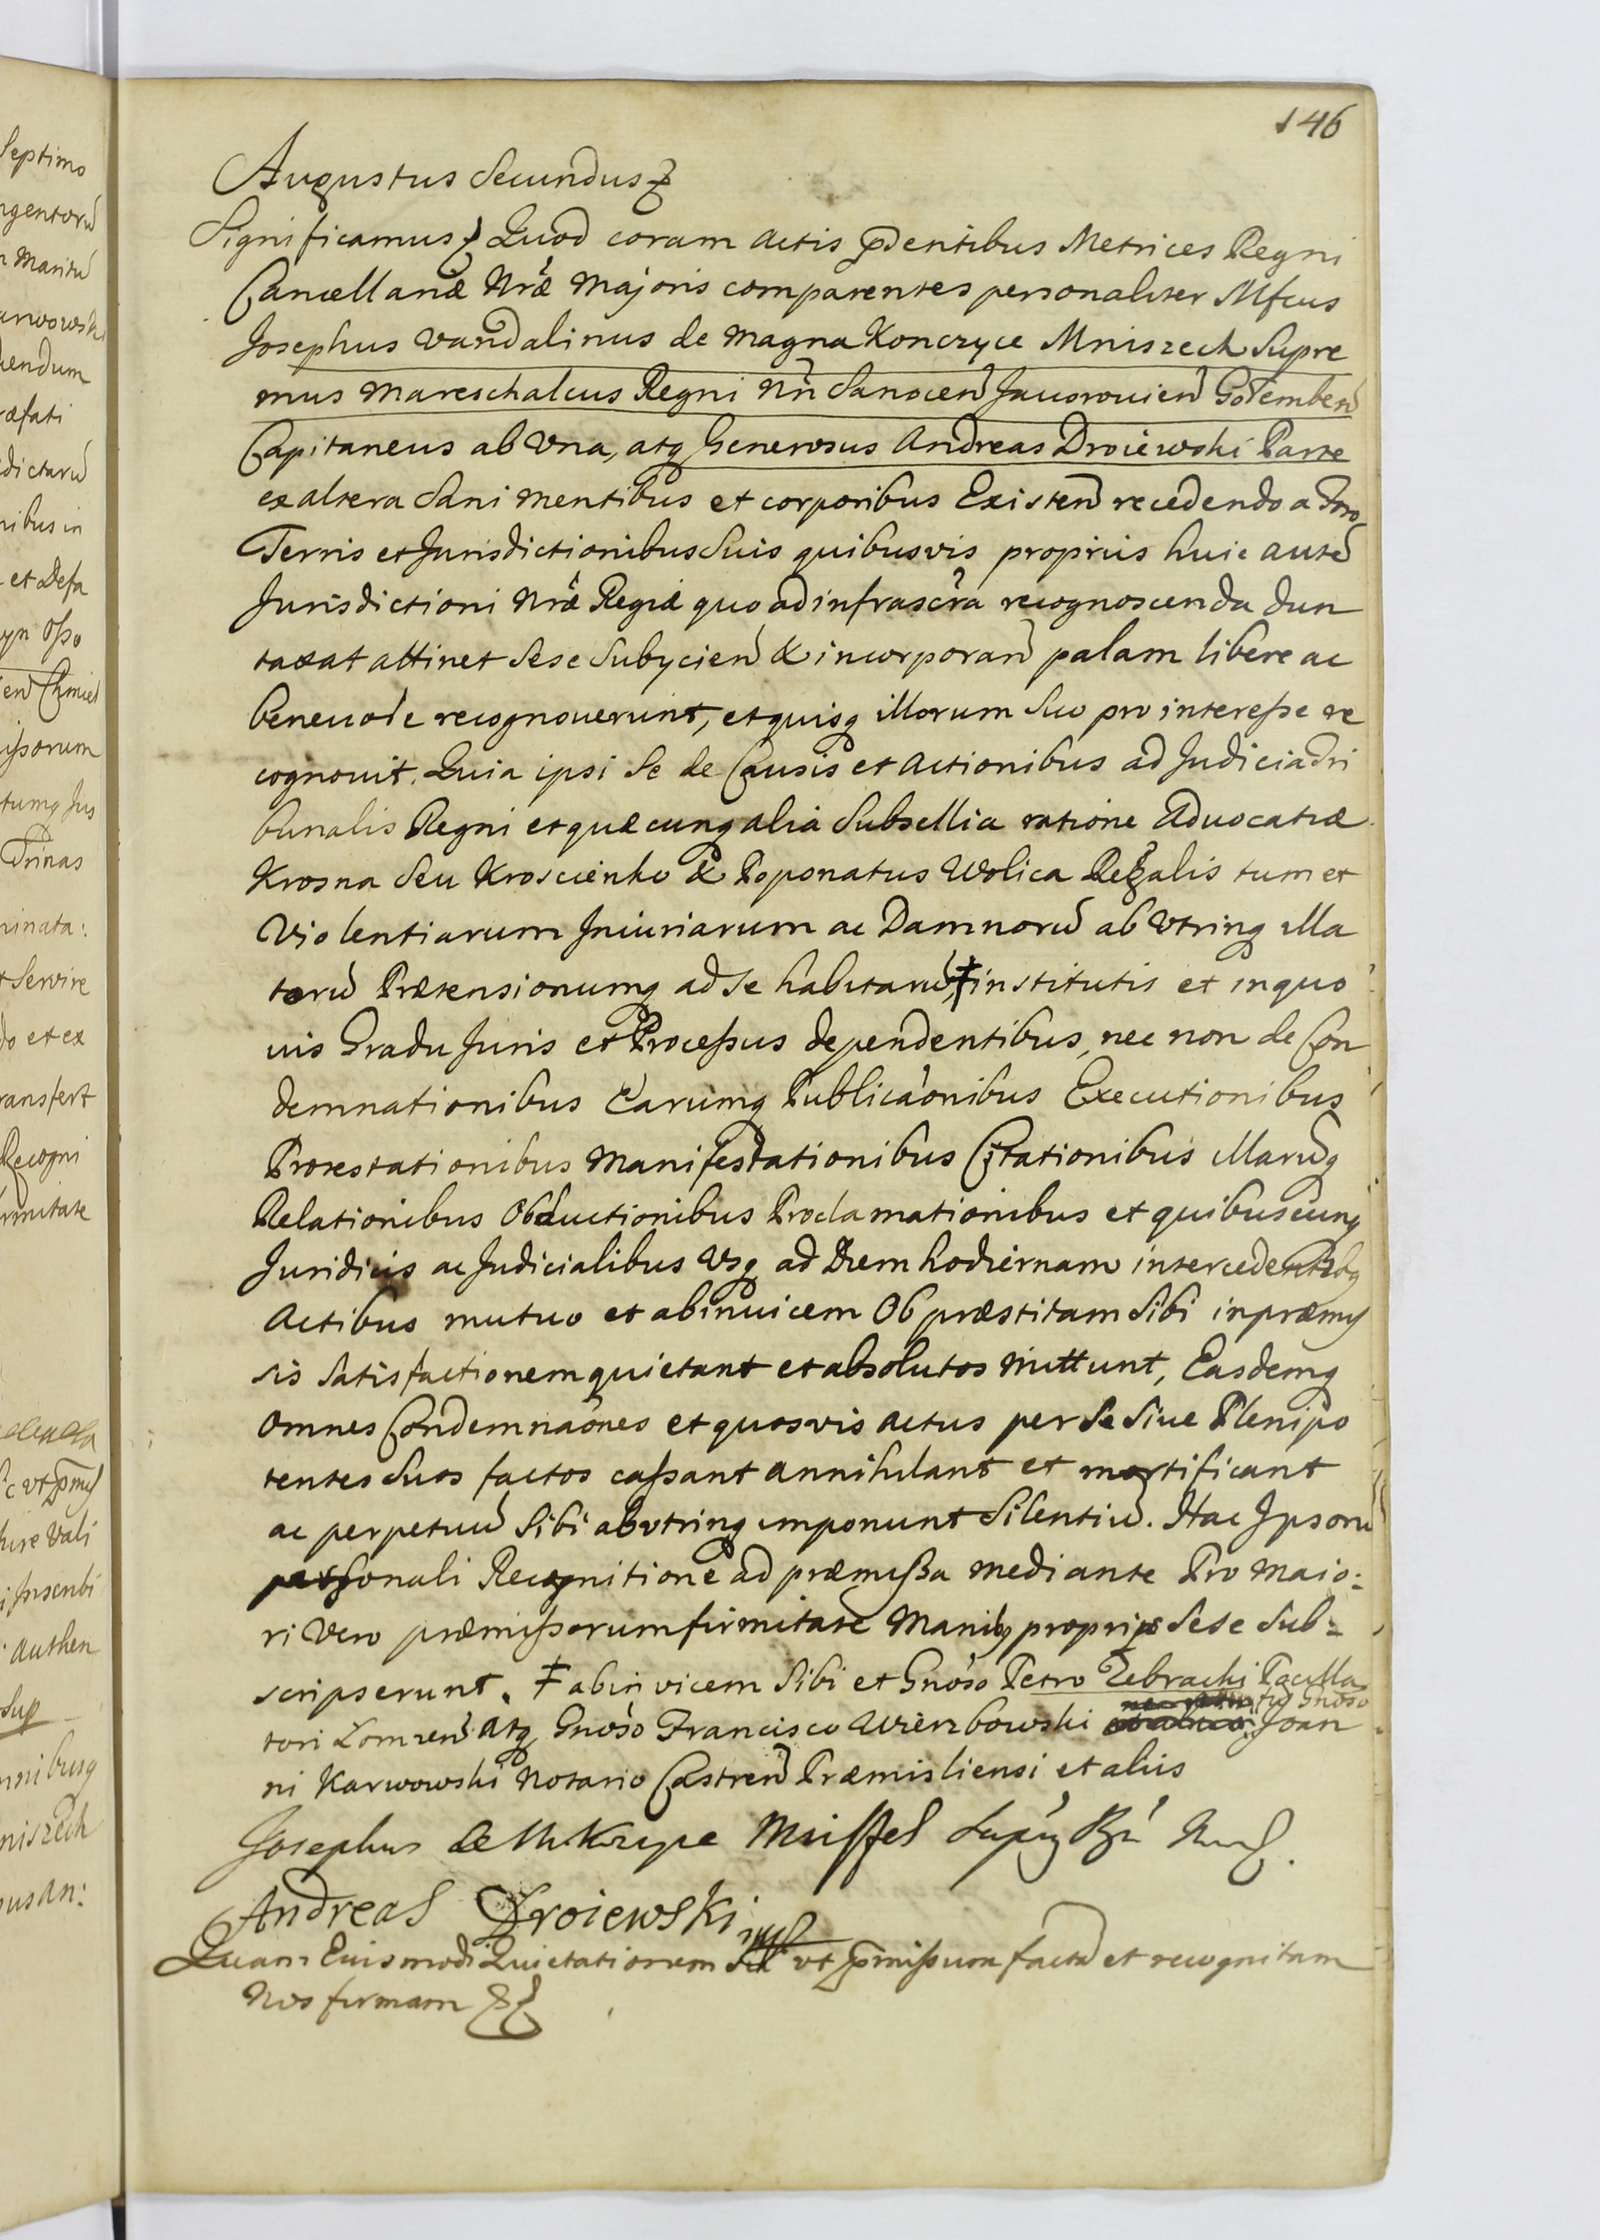 146
Augustus Secundus
Significamus Quod coram Actis pdentibus Metrices Regni
Cancellariæ Nræ Majoris comparentes personaliter Mfcus
Josephus Vandalinus de Magna Konczyce Mniszech Supre
mus Mareschalcus Regni Nrī Sanocen Jauorouien Golemben
Capitaneus ab Una, atq Generosus Andreas Droiewski Parte
ex altera Sani mentibus et corporibus Existen recedendo a Foro
Terris et Jurisdictionibus Suis quibusvis proprius huic aute
Jurisdictioni Nræ Regiæ quo ad infrascra recognoscenda dun
taxat attinet Sese Subycien & incorporan palam libere ac
beneuole recognouerunt, et quisq illorum Suo pro interesse re
cognouit. Quia ipsi Se de Causis et Actionibus ad Judicia Tri
bunalis Regni et quæcunq alia Subsellia ratione Aduocatiæ
Krosna Seu Kroscienko & Poponatus Wolica Regalis tum et
Violentiarum Iniuriarum ac Damnorū ab Utrinq illa
torū Prætensionumq ad se habitarū, ‡ institutis et in quo
uis Gradu Juris et Processus dependentibus, nec non de Con
demnationibus Earumq Publicaonibus Executionibus
Protestationibus Manifestationibus Citationibus illarūq
Relationibus Obductionibus Proclamationibus et quibuscunq
Juridicis ac Judicialibus Vsq ad Diem hodiernam intercedentibq
Actibus mutuo et abinuicem Ob præstitam Sibi in præmis
sis Satisfactionem quietant et absolutos Mittunt, Easdemq
Omnes Condemnaones et quosvis actus per Se Siue Plenipo
tentes Suos factos cassant annihilant et mortificant
ac perpetuū Sibi ab vtrinq imponunt Silentiū. Hac Ipsorū
personali Recognitione ad præmissa mediante Pro Maio:
ri Vero præmissorum firmitate Manibq proprijs Sese Sub-
scripserunt. ‡ abinvicem Sibi et Gnoso Petro Zebracki Pocilla
tori Lomzen atq Gnoso Francisco Wierzbowski tū Gnoso Joan
ni Karwowski Notario Castren Præmisliensi et aliis
Josephus de M Kczyce Mniszech
Andreas Droiewski mp
Quam Eiusmodi Quietationem Sic vt pmissum facta et recognitam
Nos firmam